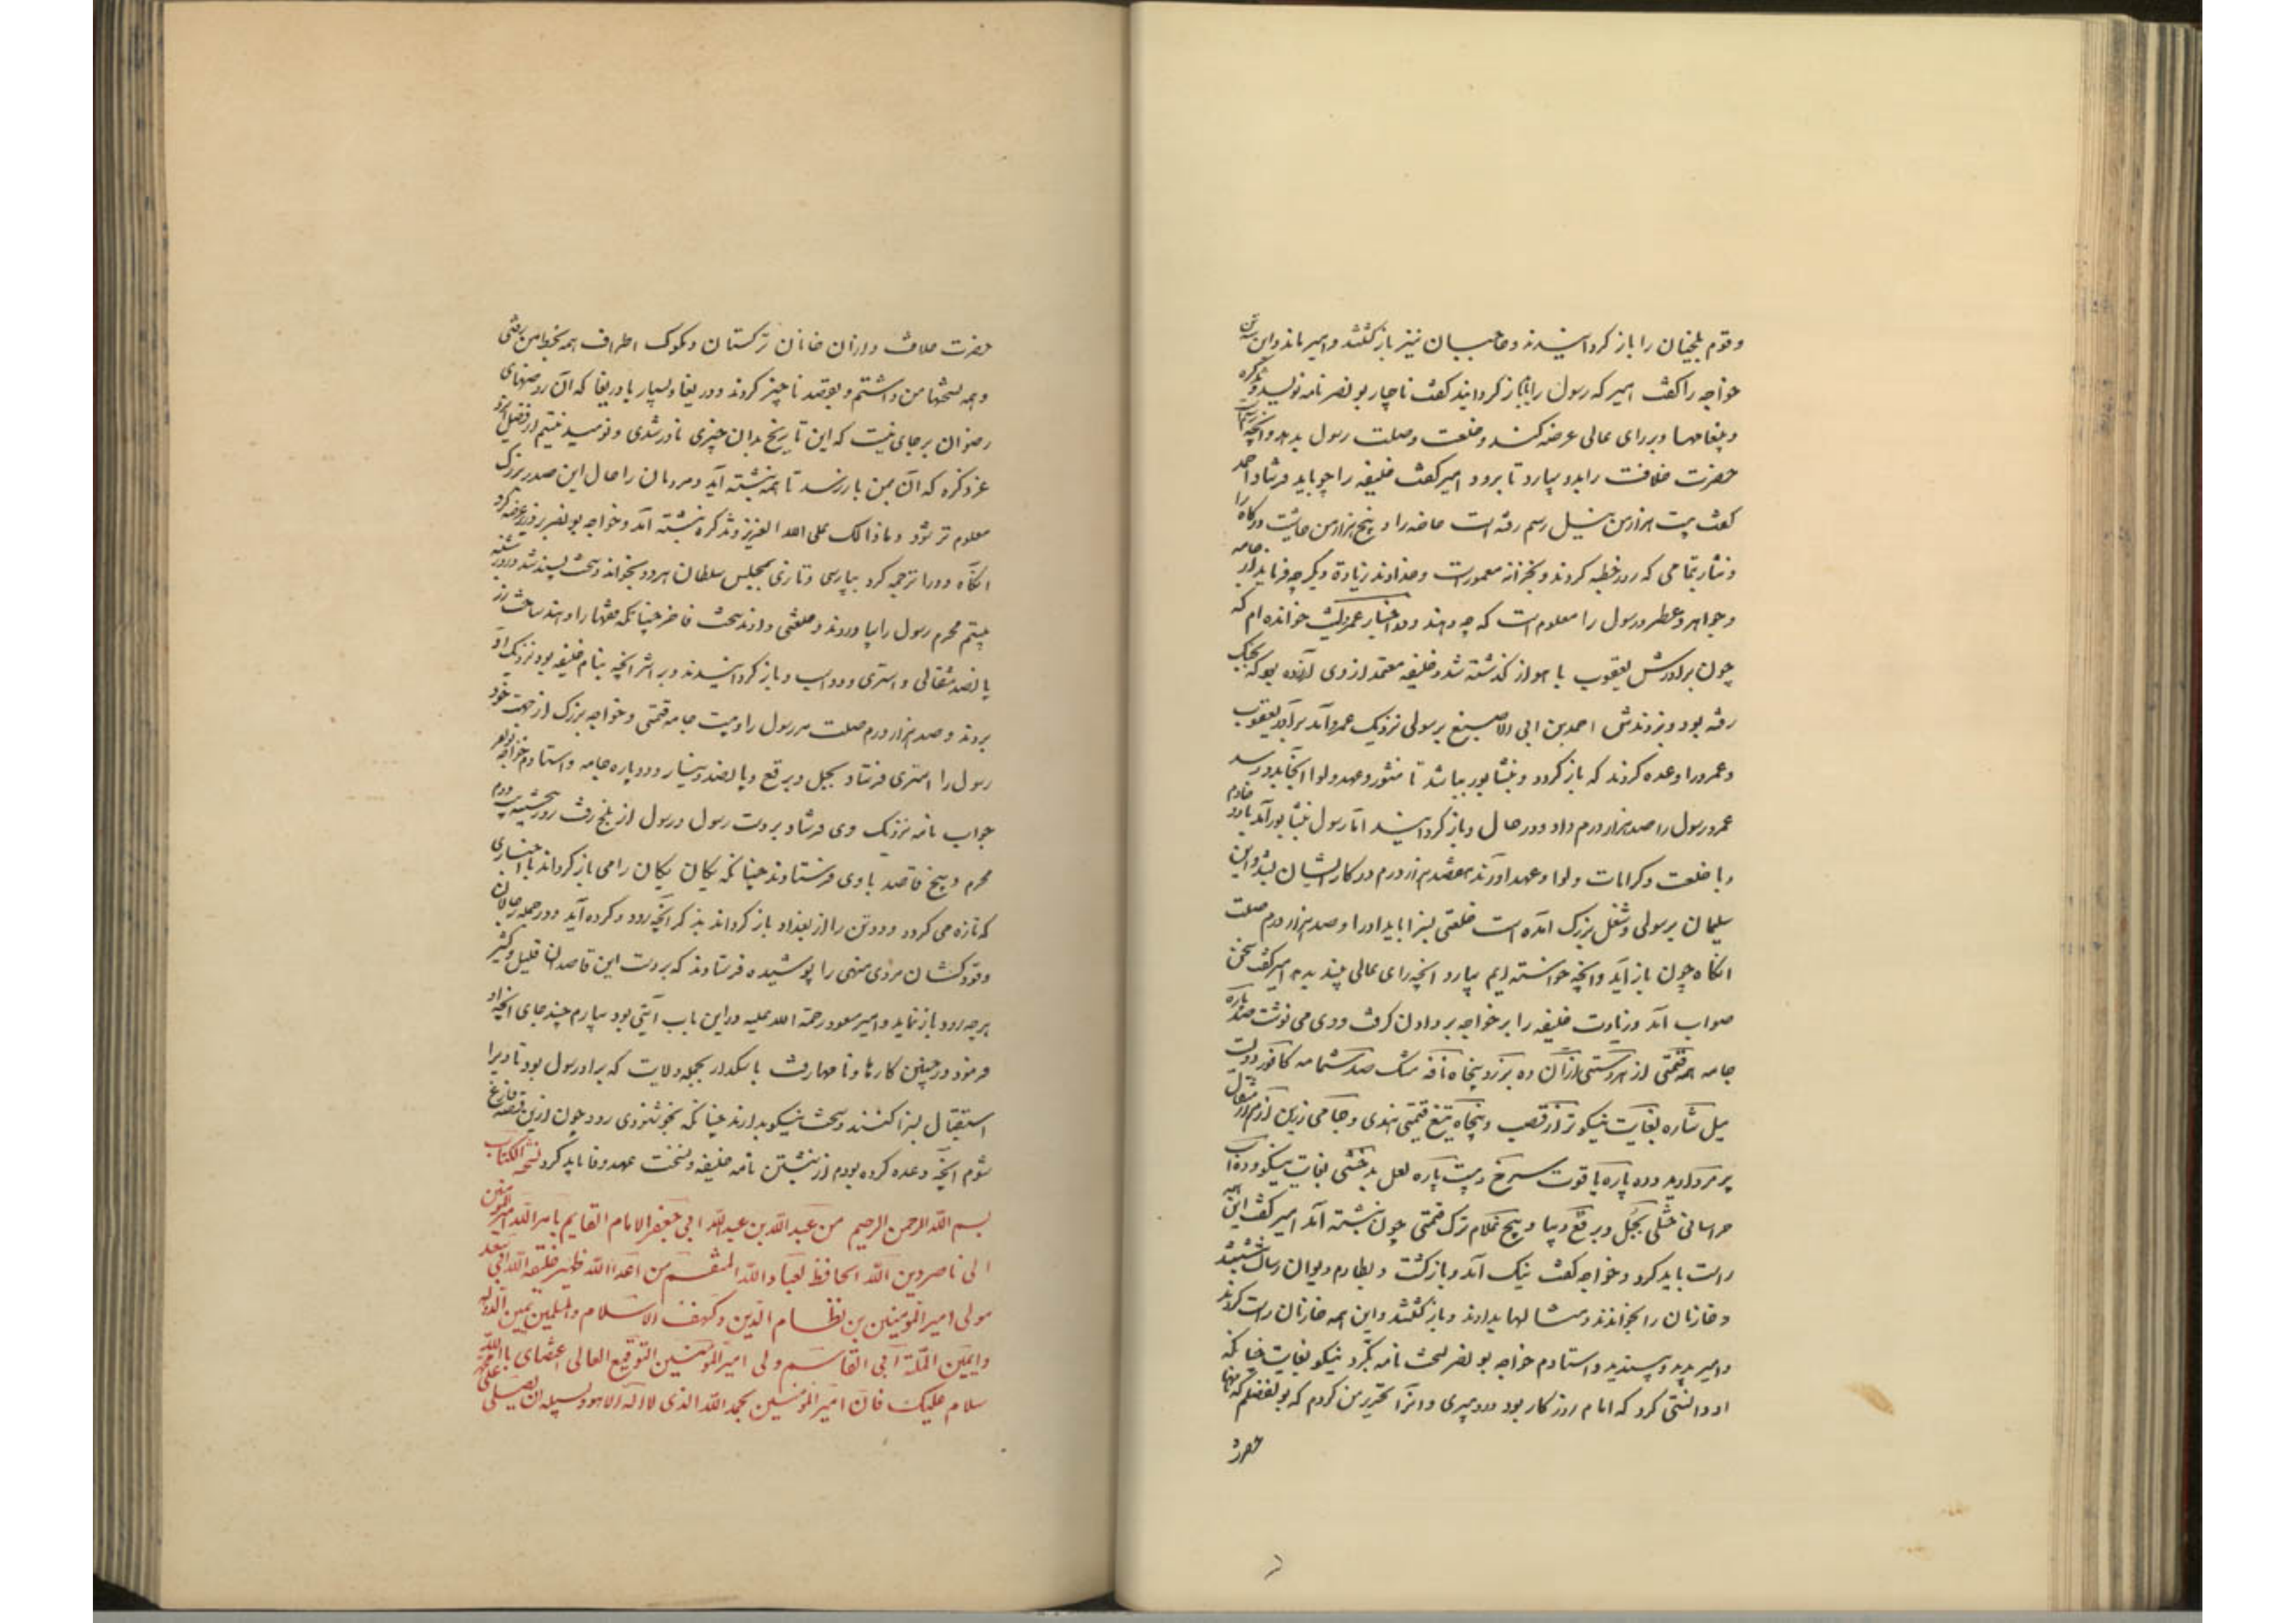 و قوم بلخیان را باز گردانیدند و حاجبان نیز باز گشتند و امیر ماند و این سه تن
خواجه را گفت امیر که رسول را باز گردانید گفت ناچار بونصر نامه نویسد و تذکره
و پیغامها و بر رای عالی عرضه کند و خلعت و صلت رسول بدهد و آنچه رسم است
حضرت خلافت را بدو سپارد تا برود امیر گفت خلیفه را چه باید فرستاد احمد
گفت بیست هزار من نیل رسم رفته است خاصه را و پنج هزار من حاشیت درگاه را
و نثار بتمامی که روز خطبه کردند و بخزانه معمورست و خداوند زیادة دیگر چه فرماید از جامه
و جواهر و عطر و رسول را معلوم است که چه دهند و در اخبار عمرو لیث خوانده ام که
چون برادرش یعقوب با هواز گذشته شد و خلیفه معتمد از وی آزرده بود که بجنگ
رفته بود و بزدندش احمد بن ابی الاصبغ برسولی نزدیک عمرو آمد برادر یعقوب
و عمرو را وعده کردند که باز گردد و بنشابور بباشد تا منشور و عهد و لوا آنجا بدو رسد
عمرو رسول را صد هزار درم داد و در حال و باز گردانید اما رسول بنشابور آمد با دو خادم
و با خلعت و کرامات و لوا و عهد آوردند هفصد هزار درم در کار ایشان بشد و این
سلیمان برسولی و شغلی بزرگ آمده است خلعتی بسزا باید او را و صد هزار درم صلت
آنگاه چون باز آید و آنچه خواسته ایم بیارد آنچه رای عالی بیند بدهد امیر گفت سخت
صواب آمد و زیادت خلیفه را بر خواجه بر دادن گرفت و وی می نوشت صد پاره
جامه همه قیمتی از هر دستی از آن ده بزر و پنجاه نافه مشک صد شمامه کافور دویست
میل شاره بغایت نیکوتر از قصب و پنجاه تیغ قیمتی هندی و جامی زرین از هزار مثقال
پر مروارید و ده پاره یاقوت سرخ و بیست پاره لعل بدخشی بغایت نیکو و ده اسب
خراسانی ختلی بجل و برقع دیبا و پنج غلام ترک قیمتی چون نبشته آمد امیر گفت این همه
راست باید کرد و خواجه گفت نیک آمد و باز گشت و بطارم دیوان رسالت بنشست
و خازنان را بخواندند و مثالها بدادند و باز گشتند و این همه خازنان راست کردند
و امیر بدید و پسندید و استادم خواجه بونصر نسخت نامه بکرد نیکو بغایت چنانکه
او دانستی کرد که امام روزگار بود در دبیری و آنرا تحریر من کردم که بوالفضلم که نامها
حضرت
حضرت خلافت و از آن خانان ترکستان و ملوک اطراف همه بخط من رفتی
و همه نسختها من داشتم و بقصد ناچیز کردند و دریغا و بسیار بار دریغا که آن روضهای
رضوان بر جای نیست که این تاریخ بدان چیزی نادر شدی و نومید نیستم از فضل ایزد
عز ذکره که آن بمن باز رسد تا همه نبشته آید و مردمان را حال این صدر بزرگ
معلوم تر شود و ما ذالک علی الله العزیز و تذکره نبشته آمد و خواجه بونصر بر وزیر عرضه کرد
آنگاه دو را ترجمه کرد بپارسی و تازی بمجلس سلطان هر دو بخواند و سخت پسند شد و روز سه شنبه
بیستم محرم رسول را بیاوردند و خلعتی دادند سخت فاخر چنانکه فقها را دهند ساخت زر
پانصد مثقالی و استری و دو اسب و باز گردانیدند و بر اثر آنچه بنام خلیفه بود نزدیک او
بردند و صد هزار درم صلت مر رسول را و بیست جامه قیمتی و خواجه بزرگ از جهت خود
رسول را استری فرستاد بجل و برقع و پانصد دینار و ده پاره جامه و استادم خواجه بونصر
جواب نامه نزدیک وی فرستاد بر دست رسول و رسول از بلخ رفت روز پنجشنبه بیست دوم
محرم و پنج قاصد با وی فرستادند چنانکه یکان یکان را می باز گرداند با اخباری
که تازه می گردد و دو تن را از بغداد باز گرداند بذکر آنچه رود و کرده آید و در جمله رجالان
و قودکشان مردی منهی را پوشیده فرستادند که بر دست این قاصدان قلیل و کثیر
هر چه رود باز نماید و امیر مسعود رحمة الله علیه در این باب آیتی بود بیارم چند جای آنچه او
فرمود در چنین کارها و نامها رفت با سکدار بجمله ولایت که براه رسول بود تا ویرا
استقبال بسزا کنند و سخت نیکو بدارند چنانکه بخوشنودی رود چون از این قصه فارغ
شوم آنچه وعده کرده بودم از نبشتن نامه خلیفه و نسخت عهد وفا باید کرد نسخة الکتاب
بسم الله الرحمن الرحیم من عبد الله بن عبد الله ابی جعفر الامام القایم بامر الله امیر المومنین
الی ناصر دین الله الحافظ لعباد الله المنتقم من اعداء الله ظهیر خلیفة الله ابی سعد
مولی امیر المومنین بن نظام الدین و کهف الاسلام والمسلمین یمین الدوله
و امین الملة ابی القاسم ولی امیر المومنین التوقیع العالی اعتضادی بالله
سلام علیک فان امیر المومنین یحمد الله الذی لا اله الا هو و یسیله ان یصلی علی محمد